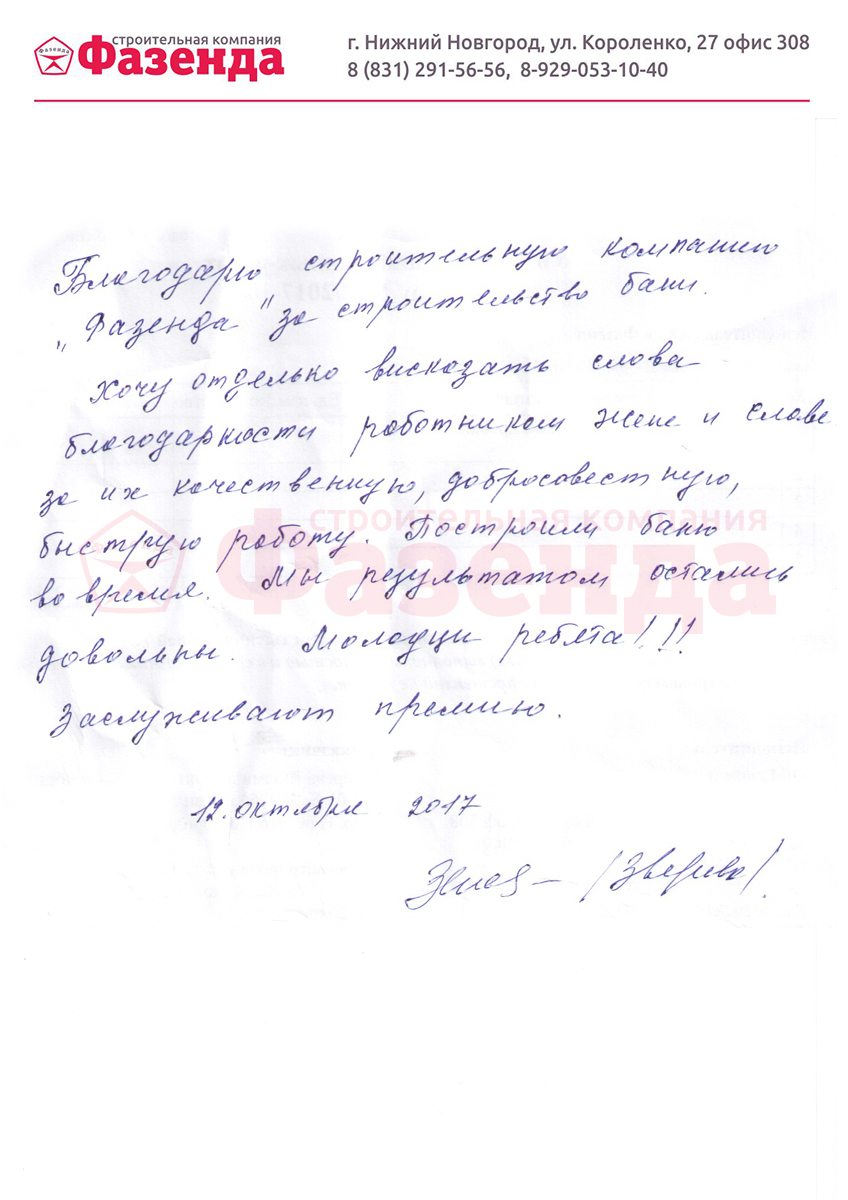 строительная компания
Фазенда
Фазенда
г. Нижний Новгород, ул. Короленко, 27 офис 308
8 (831) 291-56-56, 8-929-053-10-40
Благодарю строительную компанию
„Фазенда" за строительство бани.
Хочу отдельно высказать слова
благодарности работником Жене и Славе
за их качественную, добросовестную,
быструю работу. Построили баню
во время. Мы результатом остались
довольны. Молодцы ребята!!!
Заслуживают премию.
12. октября 2017
/Зверева/
строительная компания
Фазенда